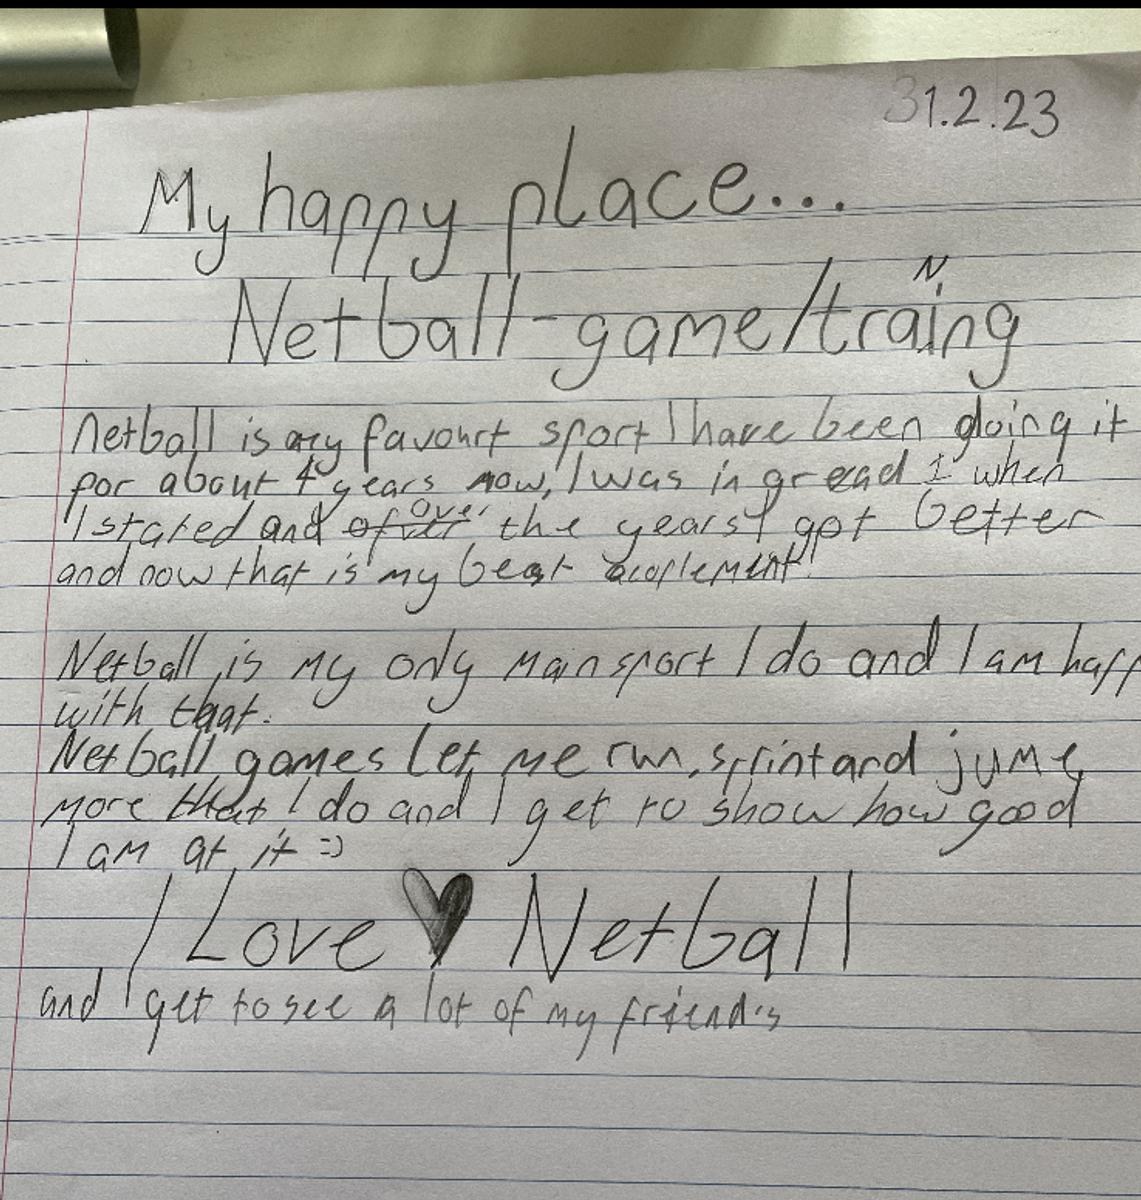 31.2.23
My happy place...
N
Netball-game/traing
Netball is my favourt sport I have been doing it
for about 4 years now, I was in gread 1 when
I stared and over the years I got better
and now that is my best acoplement!
Netball is my only main sport I do and I am happ
with that.
Netball games let me run, sprint and jump
more that I do and I get to show how good
I am at it =)
I Love ♥ Netball
and I get to see a lot of my friend's